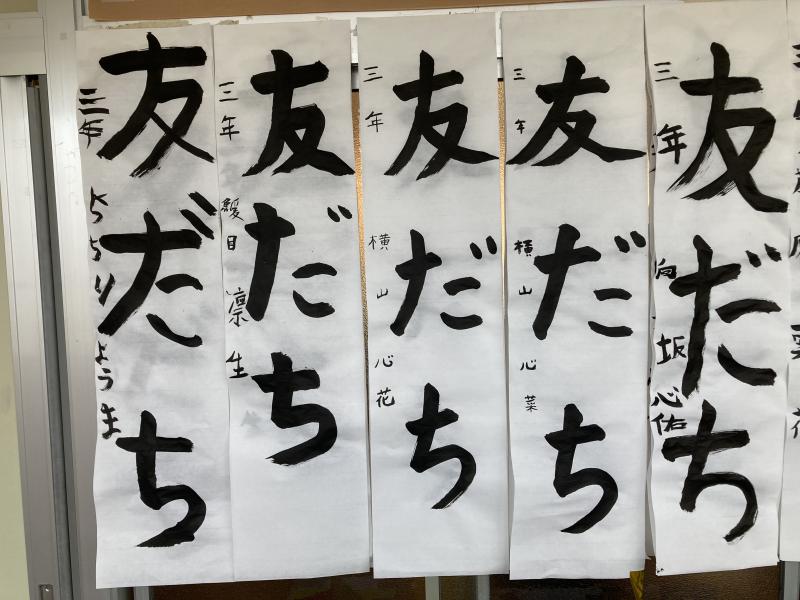 友だち
三年
友だち
三年 目 凛生
友だち
三年 横山心花
友だち
三年 横山心菜
友だち
三年 向坂心佑